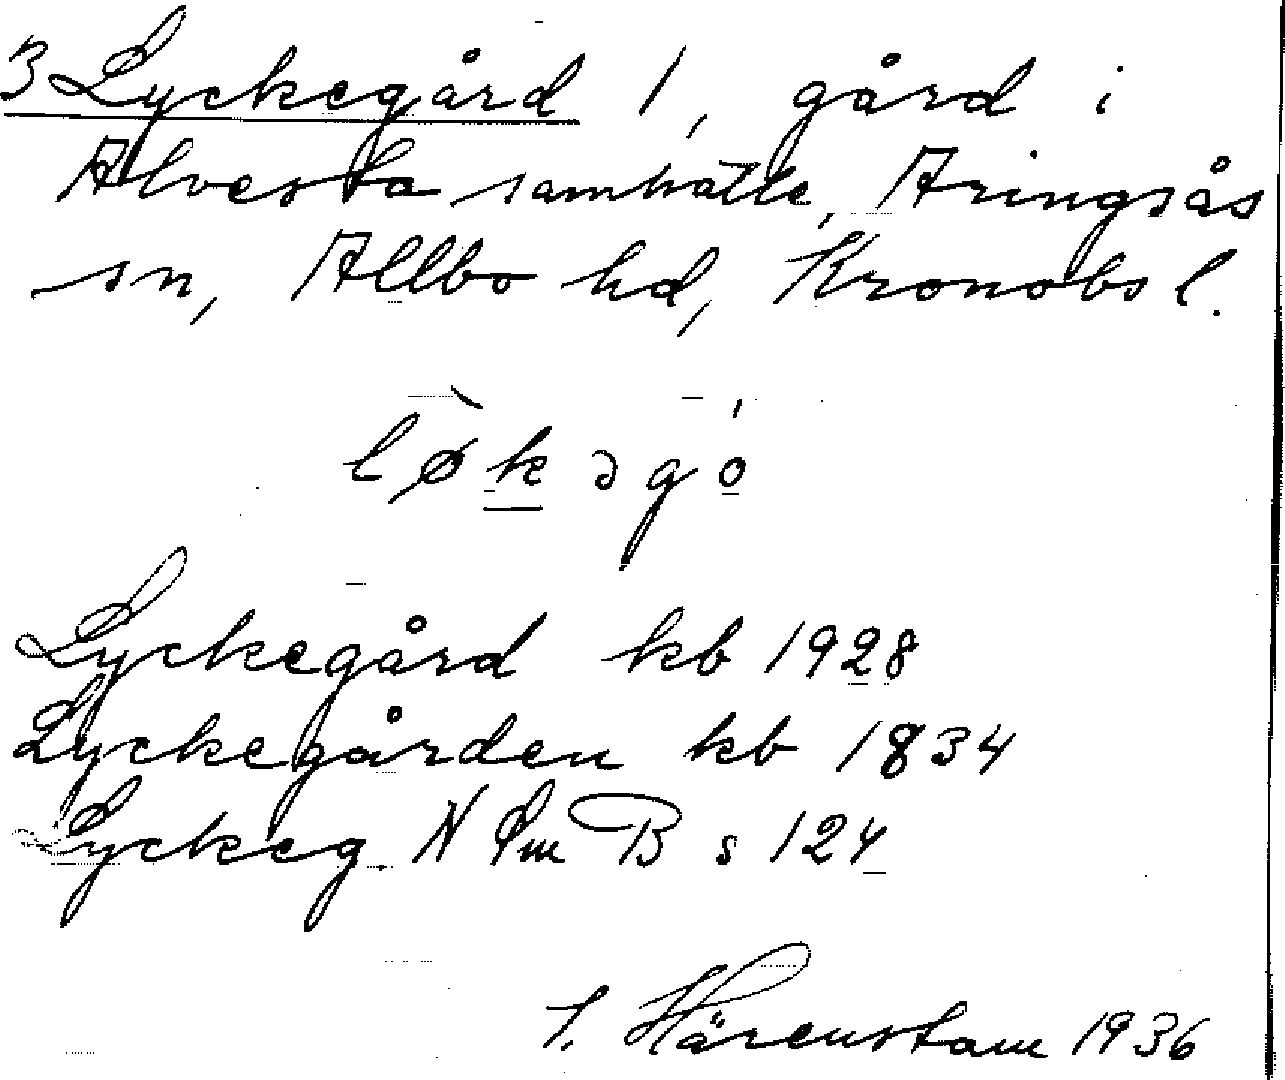 3 Lyckegård 1, gård i
Alvesta samhälle, Aringsås
sn, Allbo hd, Kronobs l.
lø̀k̲əgó
Lyckegård kb 1928
Lyckegården kb 1834
Lyckeg. N Sm B s 124
I. Härenstam 1936